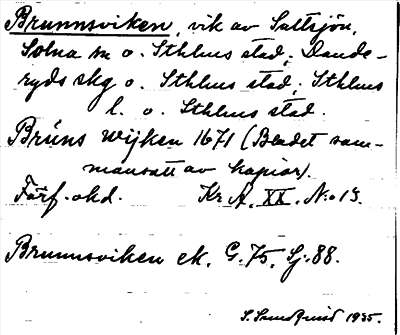 Brunnsviken, vik av Saltsjön,
Solna sn o. Sthlms stad; Dande-
ryds skg o. Sthlms stad; Sthlms
l. o. Sthlms stad.
Brüns wijken 1671 (Bladet sam-
mansatt av kopior).
Förf. okd. Kr A. XX. N:o 13.
Brunnsviken ek. G. 75, Sj. 88.
S. Sundquist 1935.